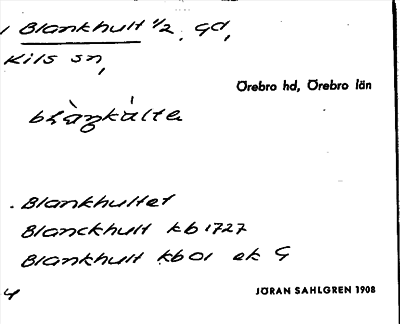 1 Blankhult 1/2, gd,
Kils sn,
Örebro hd, Örebro län
blàŋkálta
. Blankhultet
Blanckhult kb 1727
Blankhult kb 01 ek G
4
JÖRAN SAHLGREN 1908